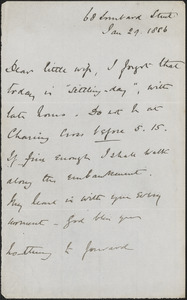 68 Lombard Street
Jan 29. 1886
Dear little wife, I forgot that
today is "Settling-day", with
late hours. Do not be at
Charing Cross before 5.15.
If fine enough I shall walk
along the embankment.
My heart is with you every
moment - God bless you
nothing to forward